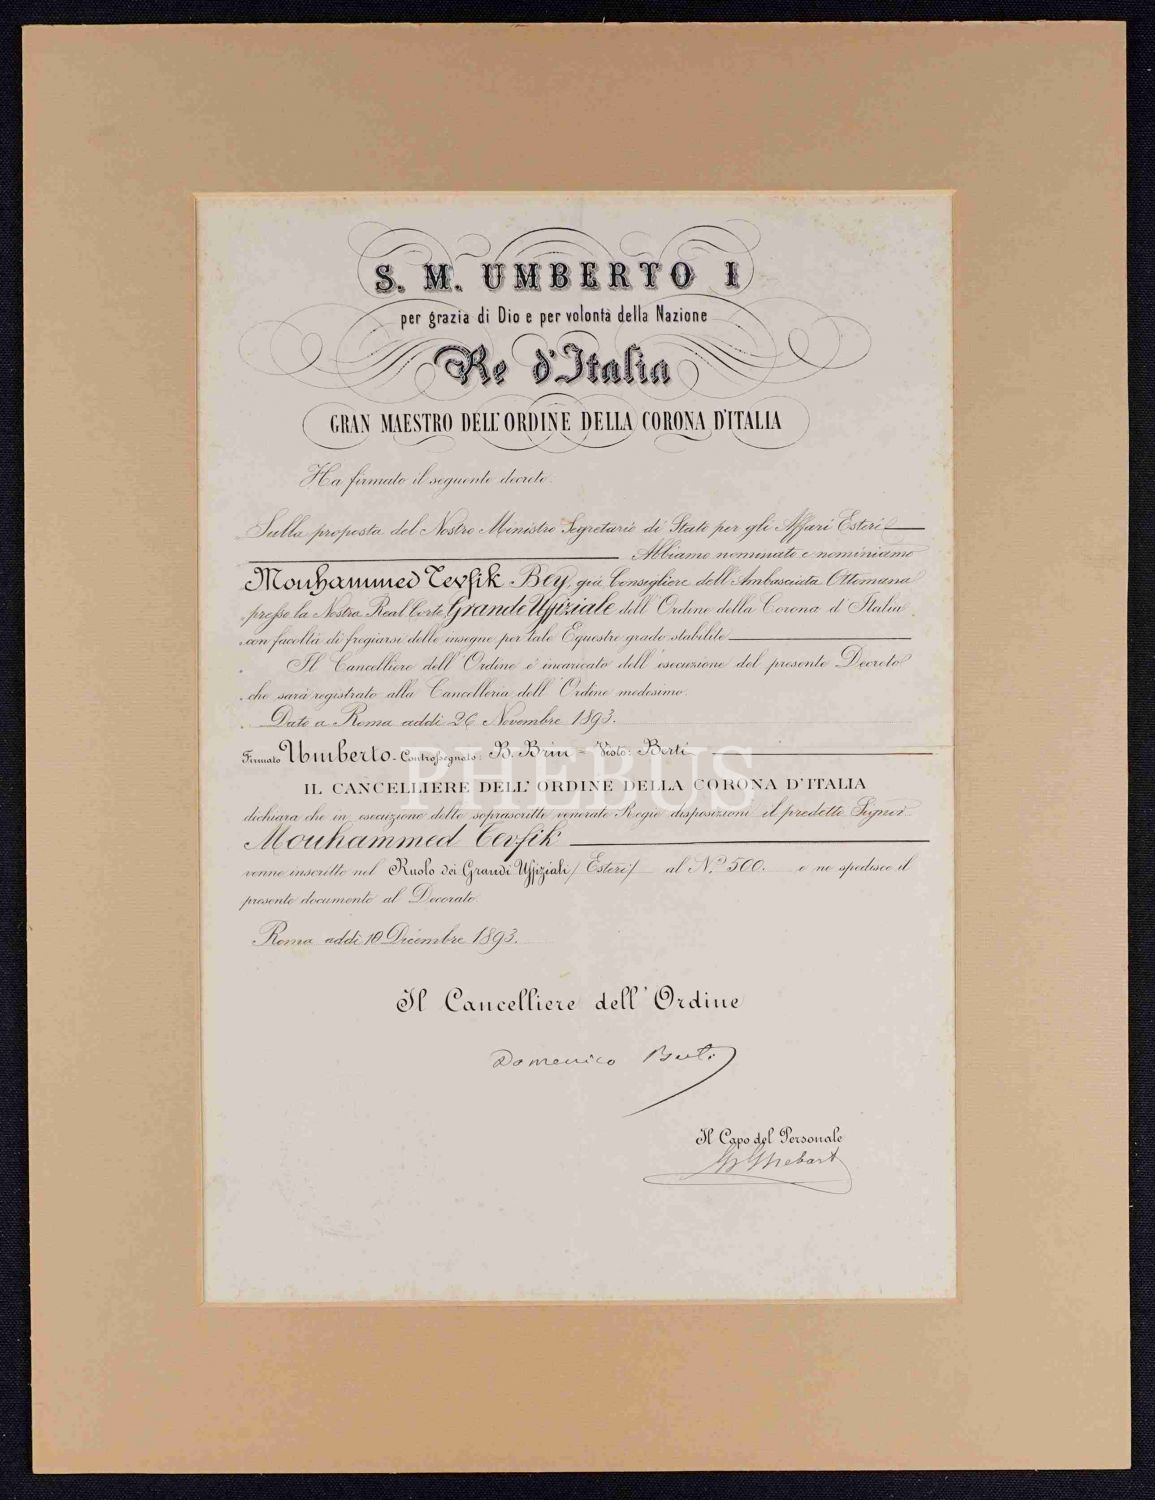 S. M. UMBERTO I
per grazia di Dio e per volontà della Nazione
Re d'Italia
GRAN MAESTRO DELL'ORDINE DELLA CORONA D'ITALIA
Ha firmato il seguente decreto.
Sulla proposta del Nostro Ministro Segretario di Stato per gli Affari Esteri
Abbiamo nominato e nominiamo
Mouhammed Tevfik Bey, già Consigliere dell'Ambasciata Ottomana
presso la Nostra Real Corte, Grande Uffiziale dell'Ordine della Corona d'Italia
con facoltà di fregiarsi delle insegne per tale Equestre grado stabilite
Il Cancelliere dell'Ordine è incaricato dell'esecuzione del presente Decreto
che sarà registrato alla Cancelleria dell'Ordine medesimo.
Dato a Roma addì 26 Novembre 1893.
Firmato Umberto - Controssegnato: B. Brin - Visto: Berti
PHEBUS
IL CANCELLIERE DELL'ORDINE DELLA CORONA D'ITALIA
dichiara che in esecuzione delle soprascritte venerate Regie disposizioni il predetto Signor
Mouhammed Tevfik
venne inscritto nel Ruolo dei Grandi Uffiziali (Esteri) al N.º 500. e ne spedisce il
presente documento al Decorato.
Roma addì 10 Dicembre 1893.
Il Cancelliere dell'Ordine
Domenico Berti
Il Capo del Personale